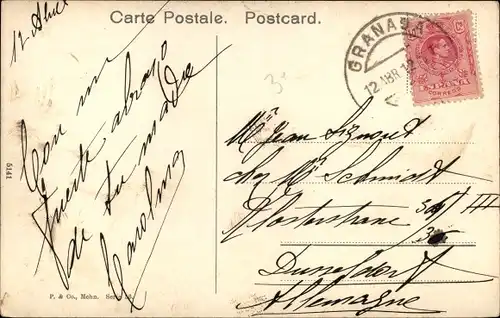 Carte Postale. Postcard.
12 Abril
Con un
fuerte abrazo
de tu madre
Carolina
GRANADA
12 ABR 12
ESPAÑA
CORREOS
Mr Jean
chez Mr Schmidt
Klosterstrasse 36 III
Dusseldorf
Allemagne
5141
P. & Co., Mchn. Serie